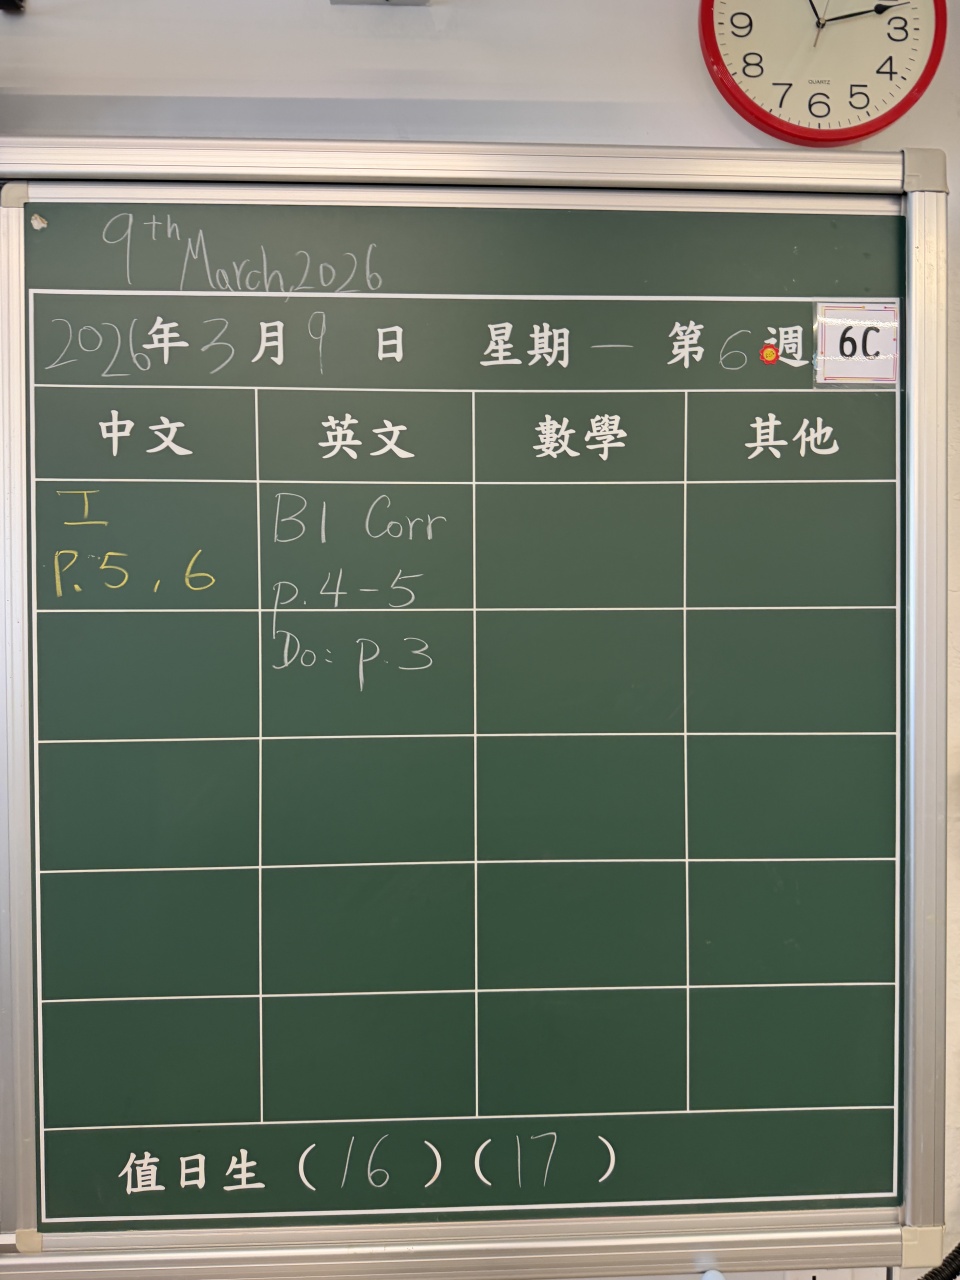 9 8 7 6 5 4 3
QUARTZ
9th March, 2026
2026年3月9日 星期一 第6週 6C
中文 英文 數學 其他
工 B1 Corr
P.5, 6 p.4-5
Do: p.3
值日生 (16) (17)